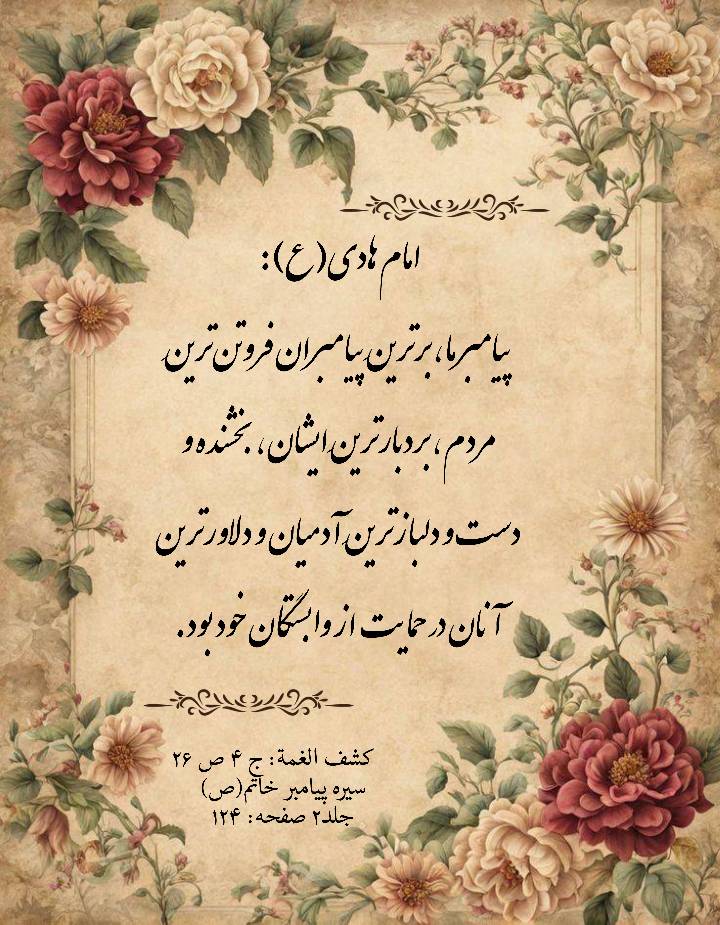 امام هادی(ع):
پیامبر ما، برترین پیامبران فروتن ترین
مردم، بردبارترین ایشان، بخشنده و
دست و دلبازترین آدمیان و دلاورترین
آنان در حمایت از وابستگان خود بود.
کشف الغمة: ج ۴ ص ۲۶
سیره پیامبر خاتم(ص)
جلد۲ صفحه: ۱۲۴